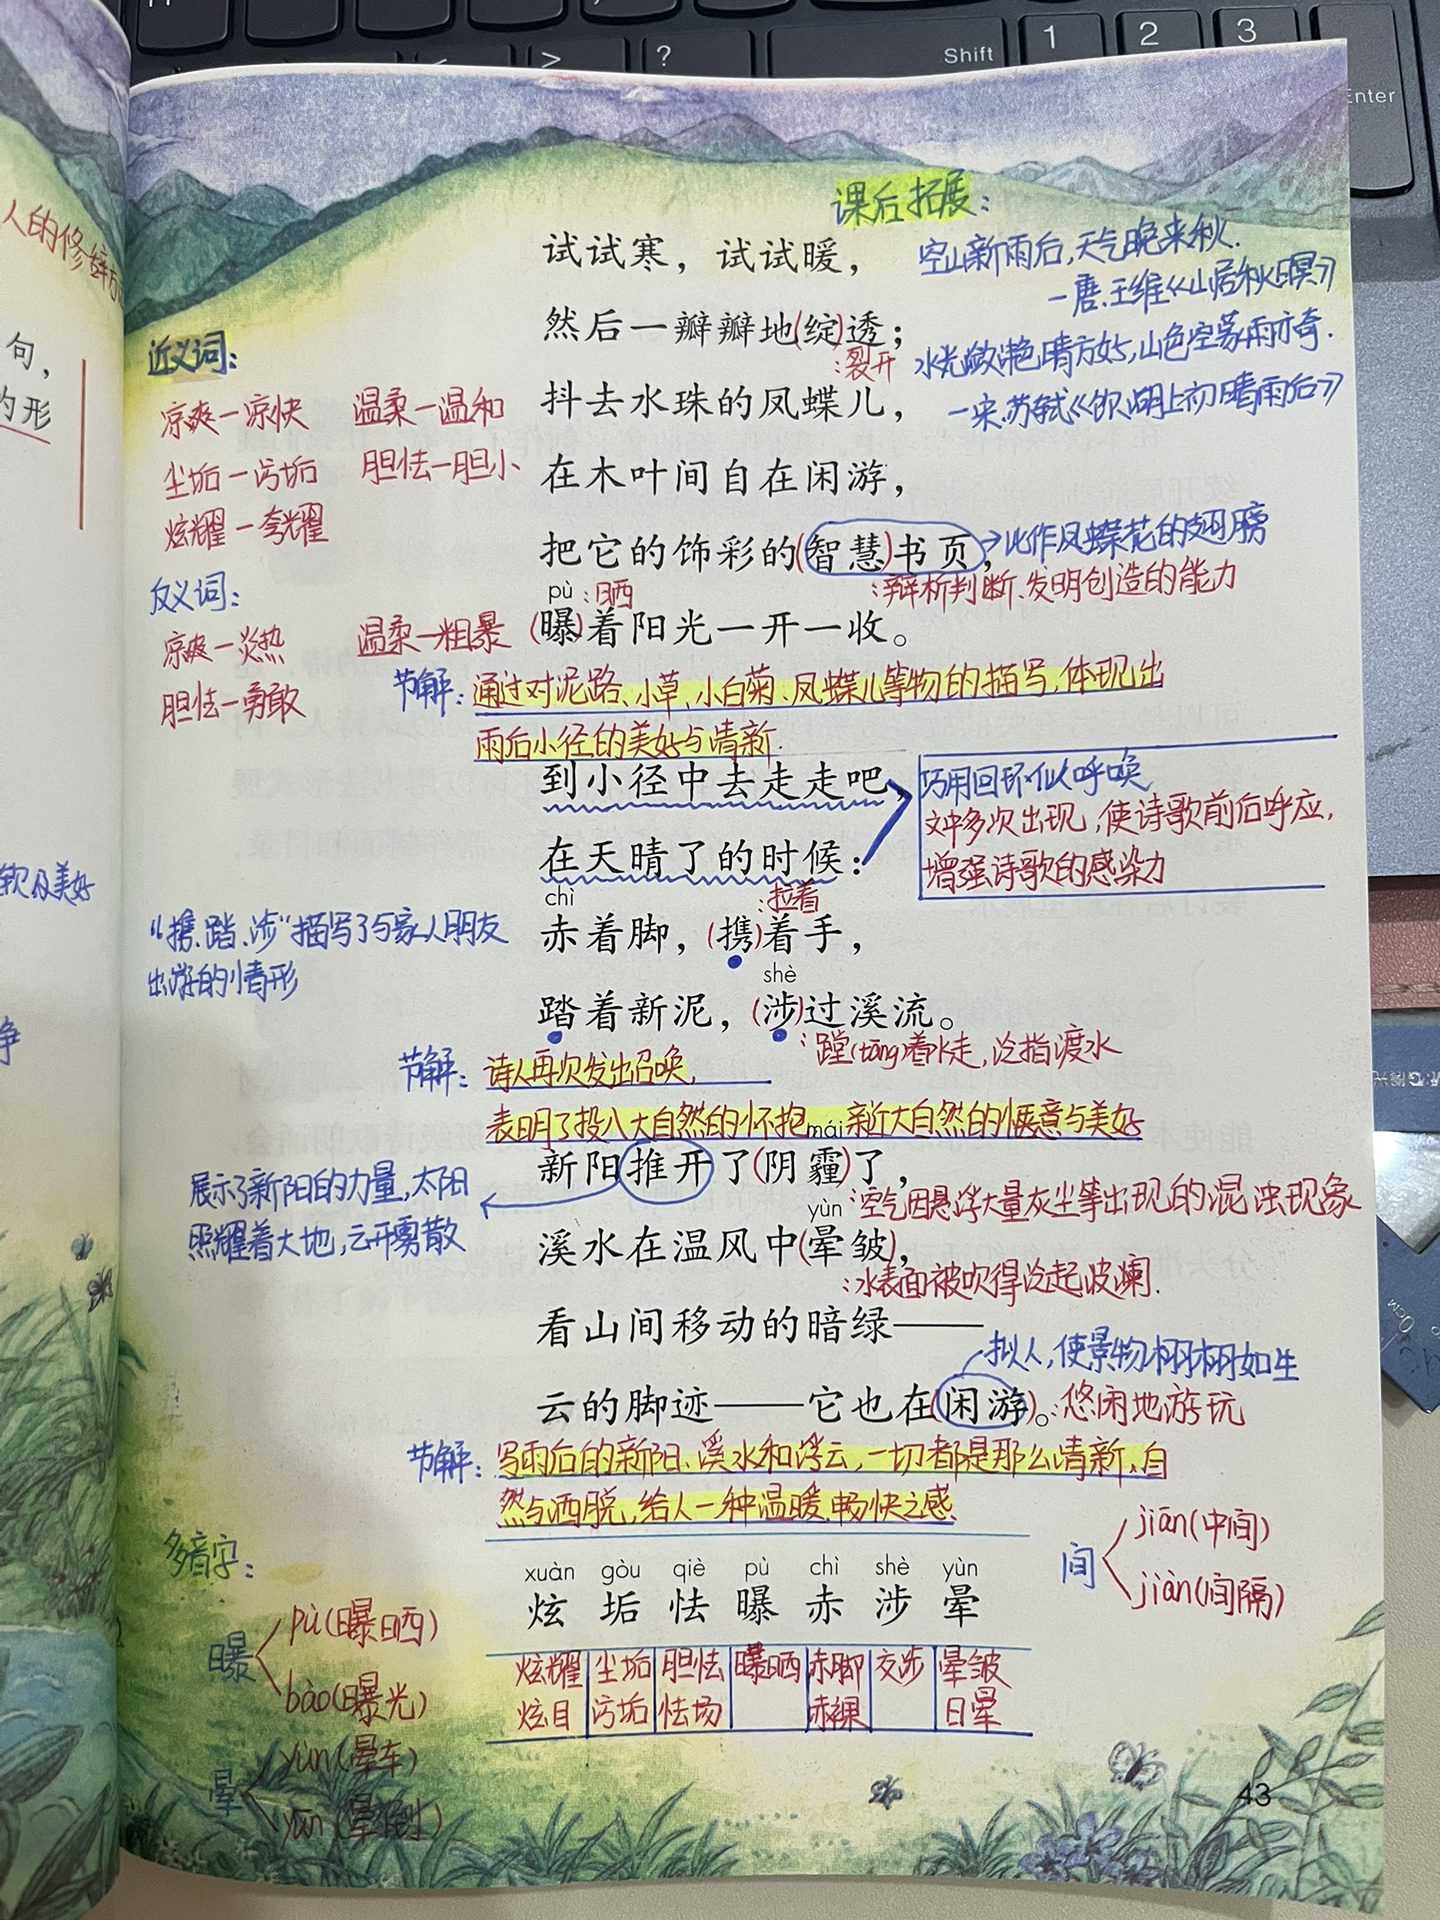 Shift
1
2
3
Enter
>
?
人的修辞方
句，
的形
软及美好
净
课后拓展：
试试寒，试试暖，
空山新雨后，天气晚来秋.
—唐.王维《山居秋暝》
然后一瓣瓣地(绽)透；
：裂开
水光潋滟晴方好，山色空蒙雨亦奇.
—宋.苏轼《饮湖上初晴雨后》
近义词：
凉爽—凉快 温柔—温和
尘垢—污垢 胆怯—胆小
炫耀—夸耀
抖去水珠的凤蝶儿，
在木叶间自在闲游，
把它的饰彩的(智慧)书页，
比作凤蝶花的翅膀
：辩析判断.发明创造的能力
pù ：晒
(曝)着阳光一开一收。
反义词：
凉爽—炎热 温柔—粗暴
胆怯—勇敢
节解：通过对泥路、小草、小白菊、凤蝶儿等物的描写，体现出
雨后小径的美好与清新.
到小径中去走走吧，
在天晴了的时候：
巧用回环似呼唤
文中多次出现，使诗歌前后呼应，
增强诗歌的感染力
chì
：拉着
赤着脚，(携)着手，
shè
踏着新泥，(涉)过溪流。
：蹚(tāng)着水走，泛指渡水
“携、踏、涉”描写了与家人朋友
出游的情形
节解：诗人再次发出召唤，
表明了投入大自然的怀抱、亲近大自然的惬意与美好
mái
新阳推开了(阴霾)了，
：空气因悬浮大量灰尘等出现的混浊现象
展示了新阳的力量，太阳
照耀着大地，云开雾散
yùn
溪水在温风中(晕皱)，
：水表面被吹得泛起波澜.
看山间移动的暗绿——
拟人，使景物栩栩如生
云的脚迹——它也在(闲游)。：悠闲地游玩
节解：写雨后的新阳、溪水和浮云，一切都是那么清新、自
然与洒脱，给人一种温暖、畅快之感
多音字：
曝
pù(曝晒)
bào(曝光)
晕
yùn(晕车)
yūn(晕倒)
间
jiān(中间)
jiàn(间隔)
xuàn gòu qiè pù chì shè yùn
炫 垢 怯 曝 赤 涉 晕
炫耀 尘垢 胆怯 曝晒 赤脚 交涉 晕皱
炫目 污垢 怯场 赤裸 日晕
43